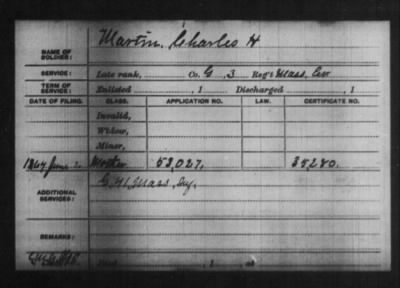 NAME OF SOLDIER: Martin, Charles H
SERVICE: Late rank, Co. G, 3 Reg't Mass. Cav
TERM OF SERVICE: Enlisted , 1 Discharged , 1
DATE OF FILING. CLASS. APPLICATION NO. LAW. CERTIFICATE NO.
Invalid,
Widow,
Minor,
1864 June 2 Mother 53,027. 38,280.
ADDITIONAL SERVICES: G. 41 Mass. Inf.
REMARKS:
Died , 1 , at